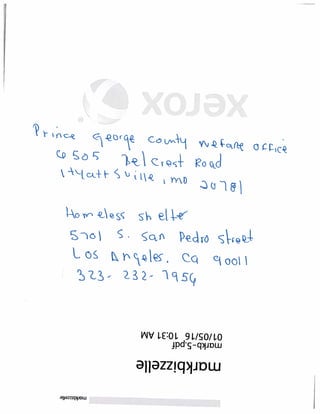 xerox
Prince George County welfare office
6505 Belcrest Road
Hyattsville, MD 20781
Homeless shelter
5701 S. San Pedro street
Los Angeles, CA 90011
323-232-7954
01/05/16 10:31 AM
markb-5.pdf
markbizzelle
markbizzelle